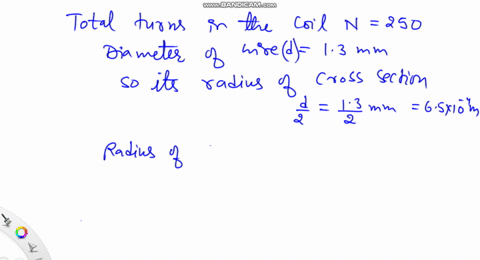 WWW.BANDICAM.COM
Total turns in the Coil N = 250
Diameter of wire (d) = 1.3 mm
so its radius of cross section
d/2 = 1.3/2 mm = 6.5×10⁻⁴m
Radius of